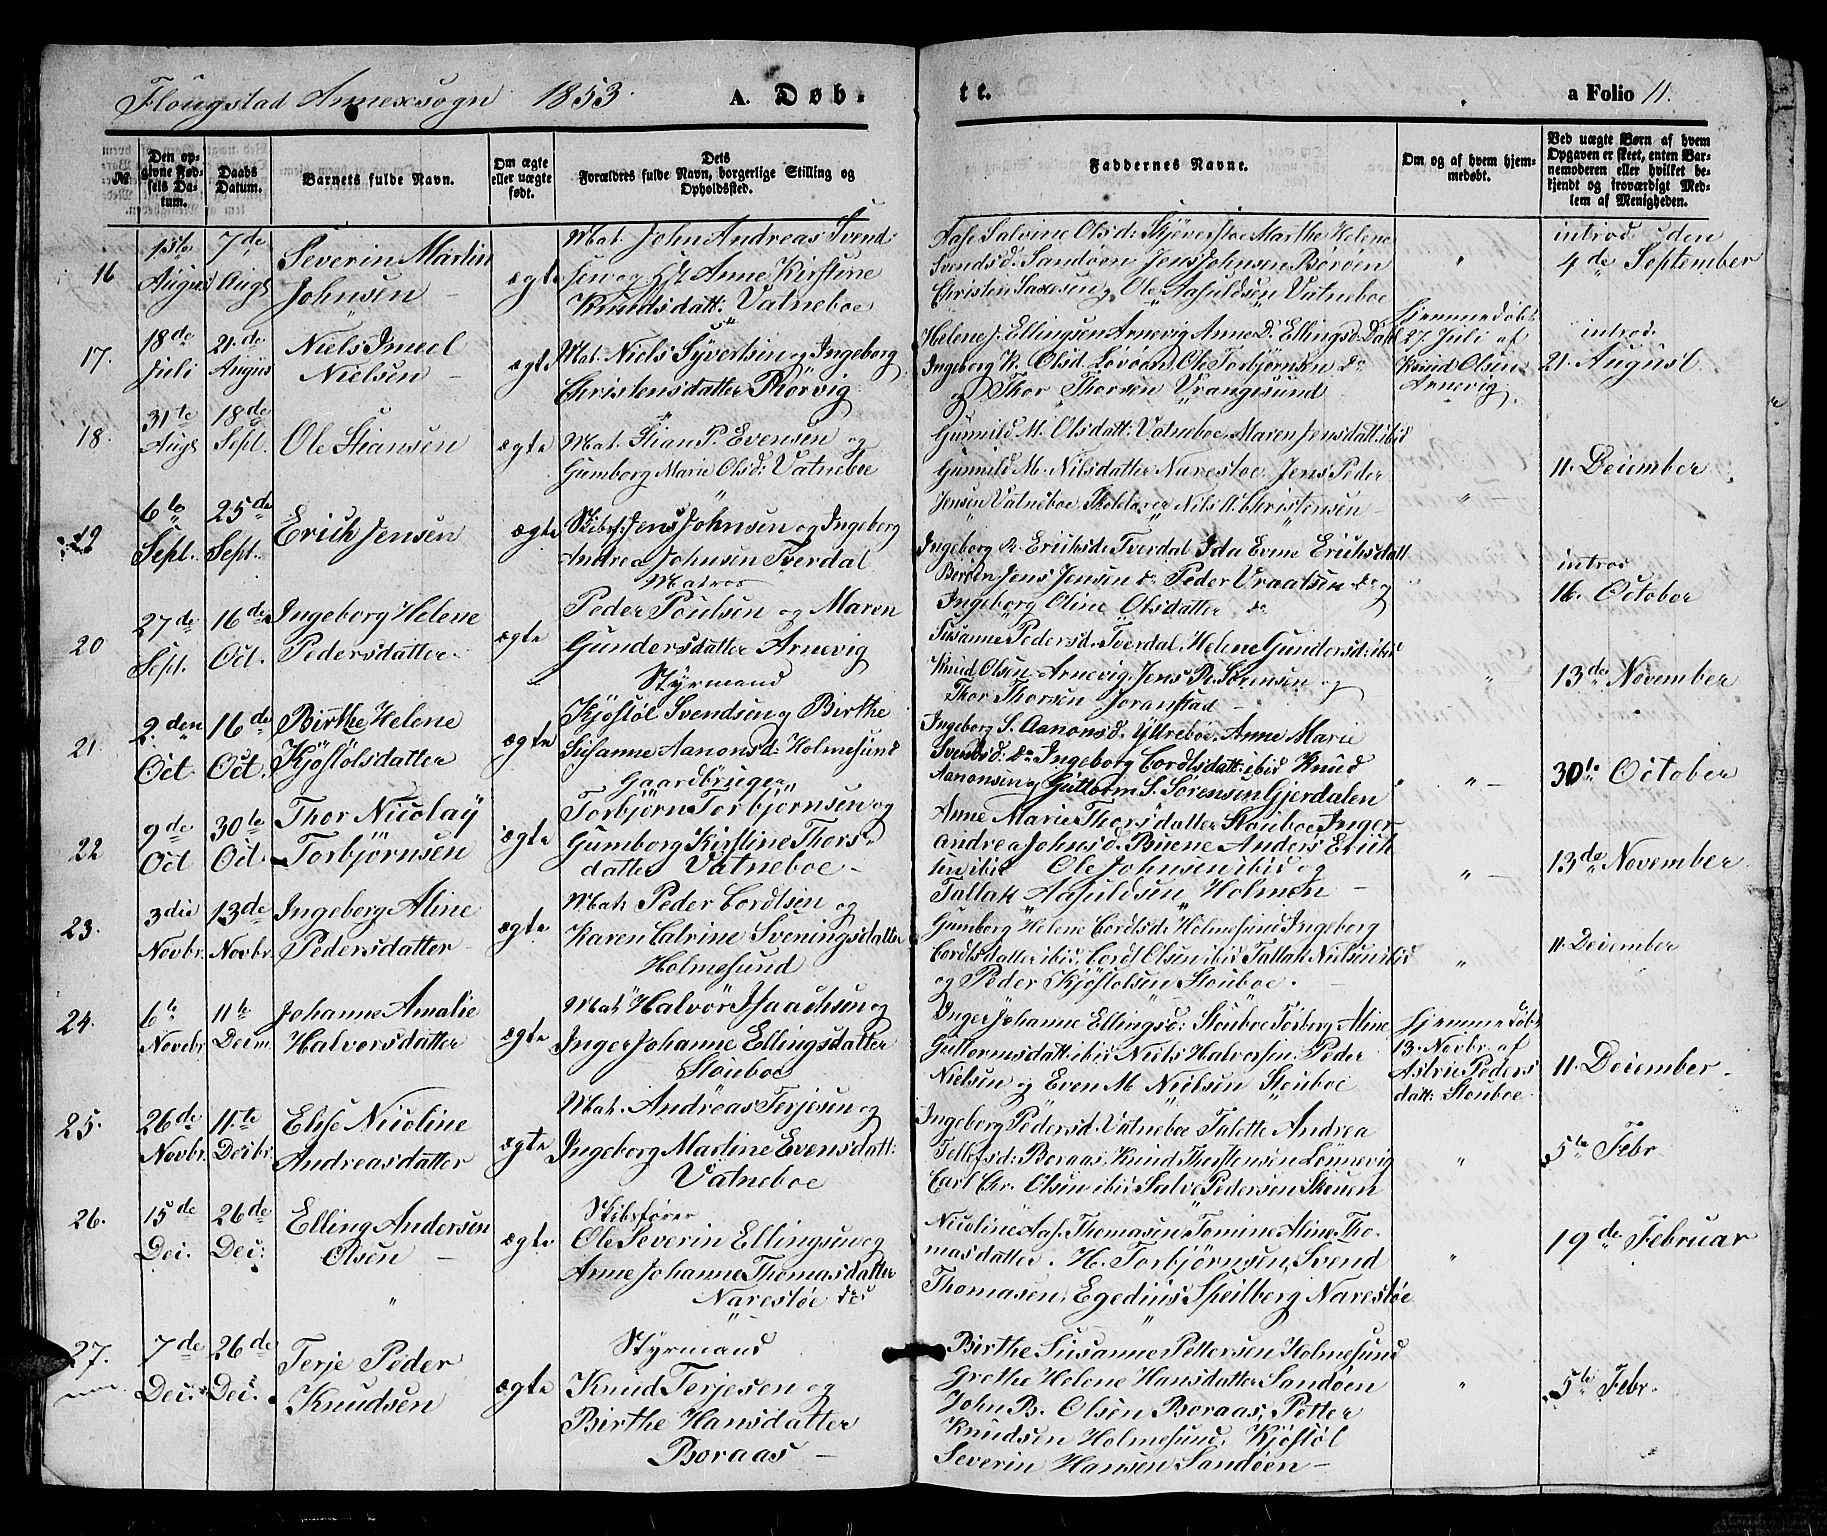 Flougstad Annexsogn 1853. A. Døb-
te. a Folio 11.
№
Den op-
givne Fød-
sels Da-
tum.
Daabs
Datum.
Barnets fulde Navn.
Om ægte
eller uægte
født.
Dets
Forældres fulde Navn, borgerlige Stilling og
Opholdssted.
Faddernes Navne.
Om og af hvem hjem-
medøbt.
Ved uægte Børn af hvem
Opgaven er skeet, enten Bar-
nemoderen eller hvilket be-
kjendt og troværdigt Med-
lem af Menigheden.
16
August
7de
Augt
Severin Martin
Johnsen
ægte
Mat. John Andreas Svend-
sen og Anne Kirstine
Knudsdatt: Vatneboe
Aase Salvine Olsd: Skjöverstøe Marthe Helene
Svendsd. Sandøen Jens Johnsen Borøen
Christen og Ole Aasuldsen Vatneboe
introd den
4de September
17.
18de
Juli
21de
Augus
Niels Imeol
Nielsen
ægte
Mat. Niels Syvertsen og Ingeborg
Christensdatter Rörvig
Helene J. Ellingsen Arnevig Anne D. Ellingsd. Dahl
Ingeborg K. Olsd. Ole Torbjørnsen do
og Thor Thorsen Vrangesund
Hjemmedøbt
27 Juli af
Knud Olsen
Arnevig.
introd.
21. August
18.
31te
Augt
18de
Sept.
Ole Stiansen
ægte
Mat. Stian P. Evensen og
Gumborg Marie Olsd: Vatneboe
Gunild M. Olsdatt: Vatneboe, Maren Jensdatt. ibid
Gunild M. Nilsdatter Narestøe. Jens Peder
Jensen Vatneboe Skolelærer Nils A. Christensen
11. December
19
6te
Sept.
25de
Sept.
Erich Jensen
ægte
Skibsf. Jens Johnsen og Ingeborg
Andrea Johnsen Tverdal
Ingeborg R. Erichsd. Tverdal Ida Evine Erichsdatt.
Borøen Jens Jensen do Peder Vraalsen do og
Ingeborg Oline Olsdatter do
introd
16. October
20
27de
Sept.
16de
Oct.
Ingeborg Helene
Pedersdatter
ægte
Matros
Peder Poulsen og Maren
Gundersdatter Arnevig
Susanne Pedersd. Tverdal, Helene Gundersd. ibid
Knud Olsen Arnevig, Jens R. Sørensen og
Thor Thorsen Joranstad
13de November
21.
2den
Oct
16de
Oct.
Birthe Helene
Kjöstölsdatter
ægte
Styrmand
Kjöstöl Svendsen og Birthe
Susanne Aanonsd: Holmesund
Ingeborg S. Aanonsd. Yttrebøe. Anne Marie
Svendsd: do Ingeborg Cordtsdatt: ibid Knud
Aanonsen og Guttorm S. Sørensen Gjerdalen
30te October
22
9de
Oct
30te
Oct.
Thor Nicolay
Torbjørnsen
ægte
Gaardbruger
Torbjørn Torbjørnsen og
Gumborg Kirstine Thors-
datter Vatneboe
Anne Marie Thorsdatter Stouboe Inger
Andrea Johnsd. Buene Anders Erich
sen ibid Ole Johnsen ibid og
Tallak Aasuldsen Holmen
13de November
23.
3die
Novbr.
13de
Novbr.
Ingeborg Aline
Pedersdatter
ægte
Mat. Peder Cordtsen og
Karen Catrine Sveningsdatter
Holmesund
Gumborg Helene Cordtsd. Holmesund Ingeborg
Cordtsdatter ibid, Cordt Olsen ibid Tallak Nielsen ibid
og Peder Kjöstolsen Stouboe.
11. December
24.
6te
Novbr.
11te
Decm.
Johanne Amalie
Halvorsdatter
ægte
Mat. Halvor Isaachsen og
Inger Johanne Ellingsdatter
Stouboe
Inger Johanne Ellingsd: Stouboe Torberg Aline
Guttormsdatt: ibid Niels Halvorsen. Peder
Nielsen og Even M Nielsen Stouboe
Hjemmedøbt
13. Novbr. af
Astrie Peders
datt: Stouboe
11. December
25.
26de
Novbr.
11te
Decbr.
Elise Nicoline
Andreasdatter
ægte
Mat. Andreas Terjesen og
Ingeborg Martine Evensdatt:
Vatneboe
Ingeborg Pedersd. Vatneboe Talette Andrea
Tellefsd: Boraas, Knud Thorstensen Lønnevig
Carl Chr. Olsen ibid Salve Pedersen Skouen
5te Febr
26.
15de
Dec.
26de
Dec:
Elling Andersen
Olsen
ægte
Skibsfører
Ole Severin Ellingsen og
Anne Johanne Thomasdatter
Narestøe
Nicoline Aas. Thomasen Tomine Aline Tho-
masdatter. H. Torbjørnsen, Svend
Thomasen, Egedius Speilberg Narestøe
19de Februar
27.
7de
Dec.
26de
Dec.
Terje Peder
Knudsen
ægte
Styrmand
Knud Terjesen og
Birthe Hansdatter
Boraas
Birthe Susanne Pettersen Holmesund
Grethe Helene Hansdatter Sandøen
John B. Olsen Boraas, Petter
Knudsen Holmesund. Kjöstöl
Severin Hansen Sandøen
5te Febr.